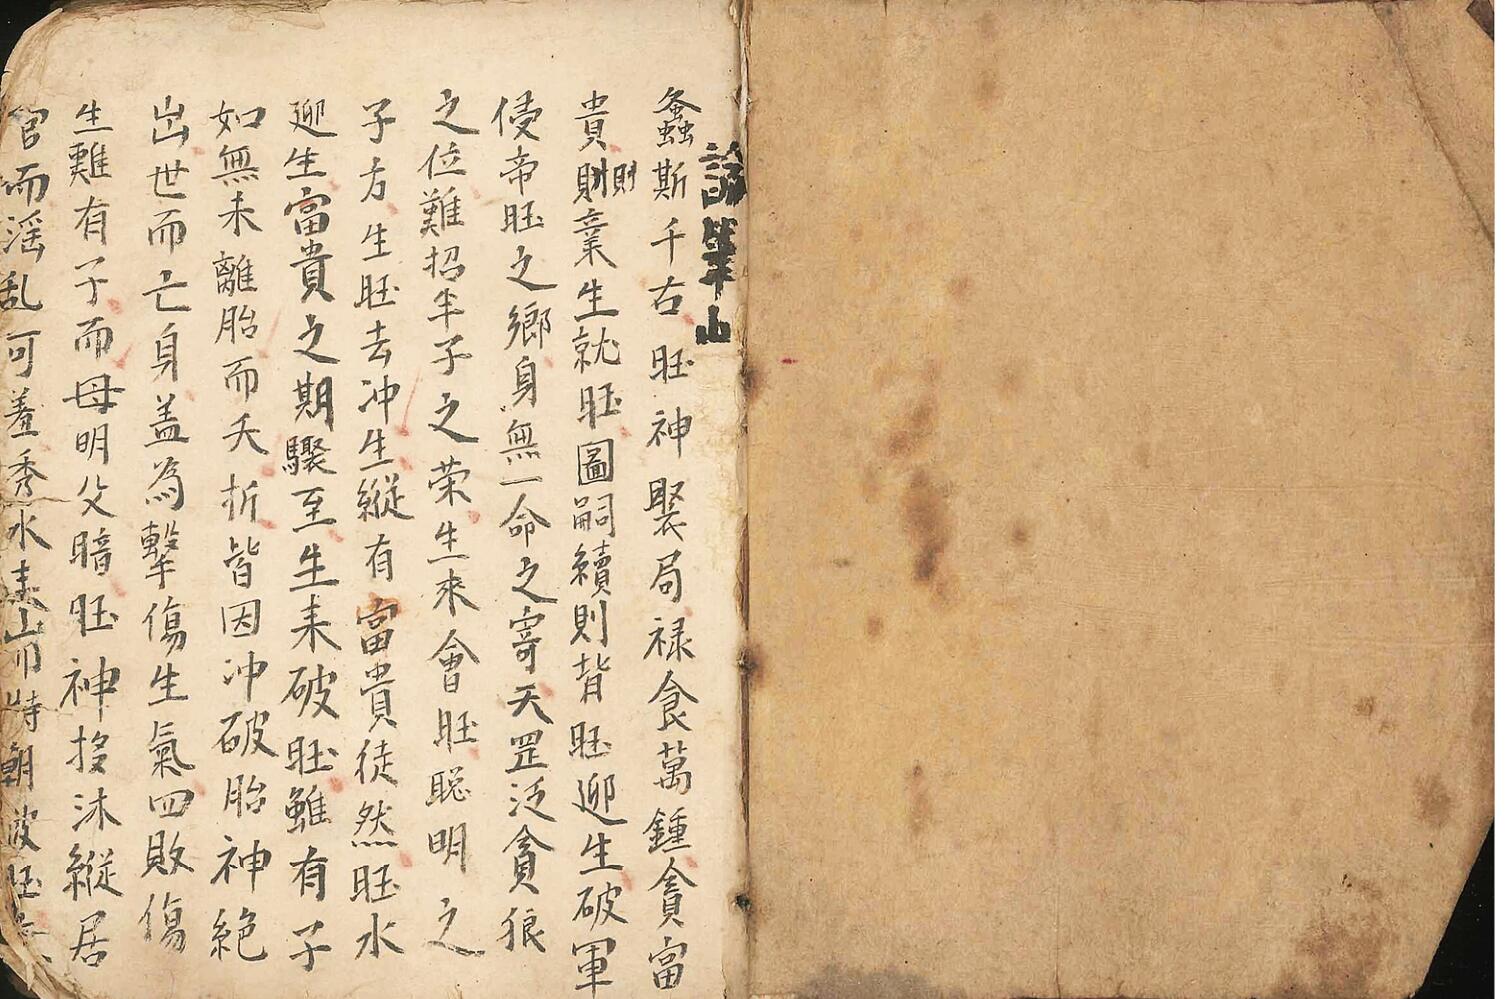 論筆山
螽斯千古旺神聚局禄食萬鍾貪富
貴則財業生就旺圖嗣續則背旺迎生破軍
侵帝旺之鄉身無一命之寄天罡泛貪狼
之位難招半子之荣生來會旺聪明之
子方生旺去冲生縱有富貴徒然旺水
迎生富貴之期驟至生来破旺雖有子
如無未離胎而夭折皆因冲破胎神絶
出世而亡身盖為擊傷生氣四敗傷
生難有子而母明父暗旺神投沐縱居
官而淫乱可羞秀水来山特朝破旺